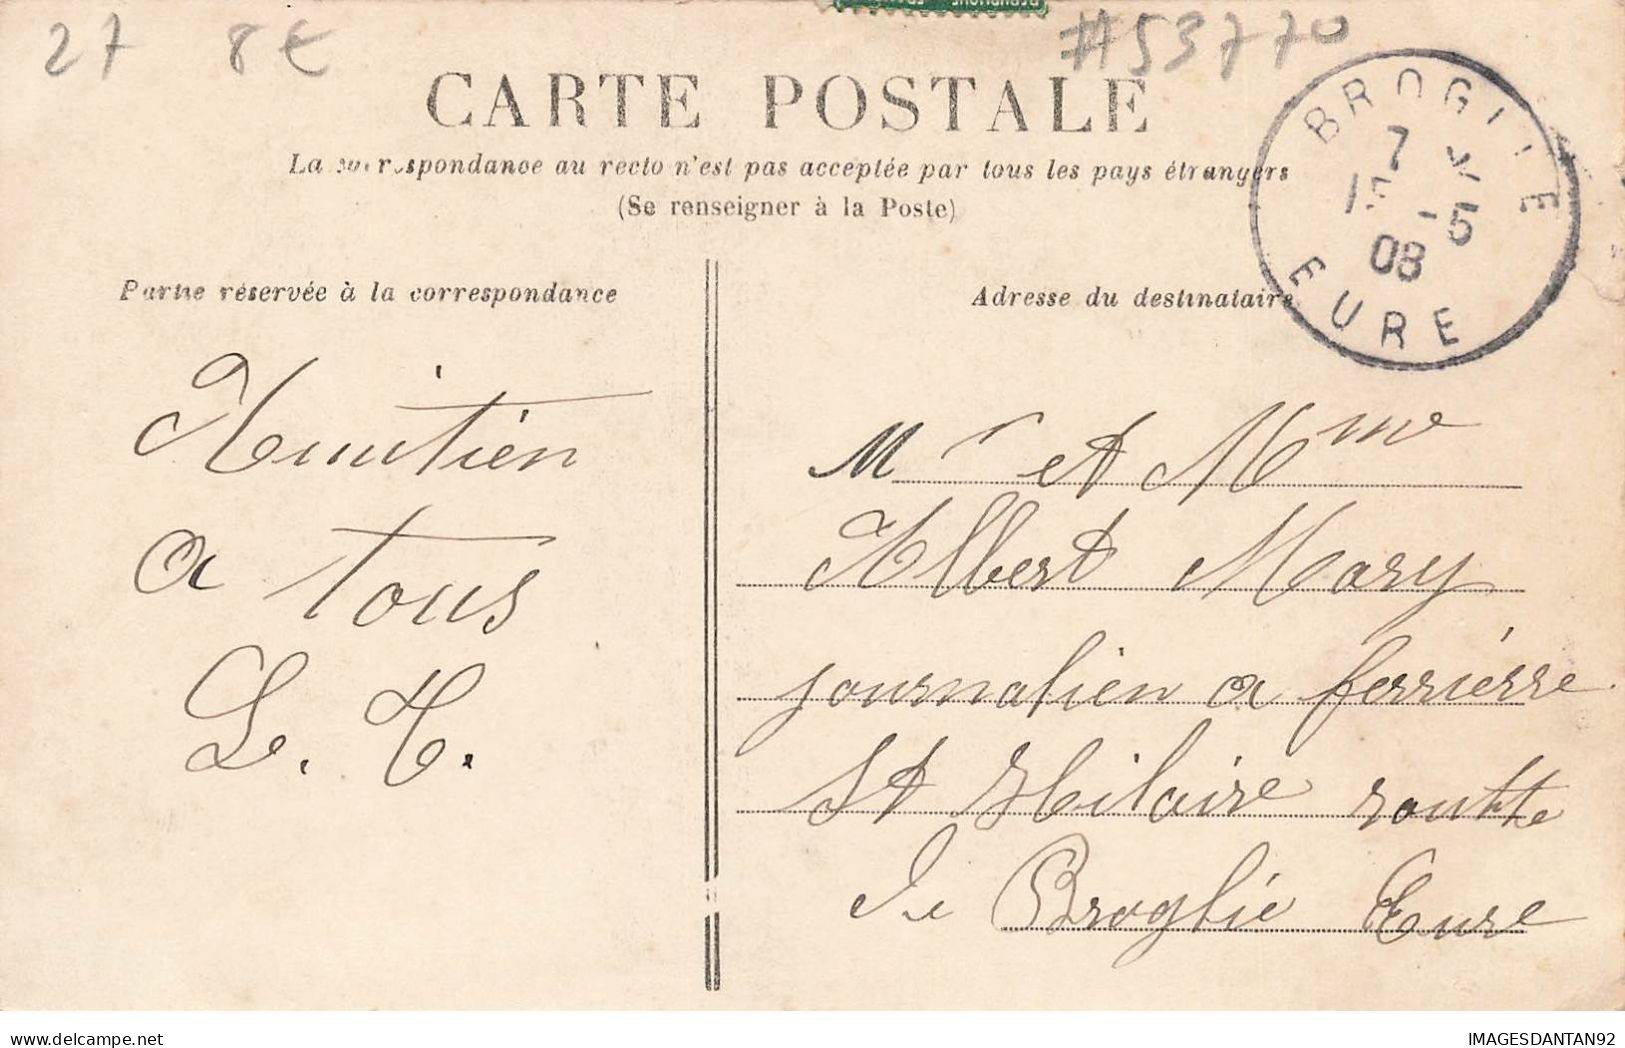 27 8€ #53770
CARTE POSTALE
La correspondance au recto n'est pas acceptée par tous les pays étrangers
(Se renseigner à la Poste)
BROGLIE
7
-5
08
EURE
Partie réservée à la correspondance
Adresse du destinataire
Amitién
a tous
L. H.
Mr et Mme
Albert Mary
journalien a ferrièrre
St Hilaire routte
de Broglie Eure
IMAGESDANTAN92